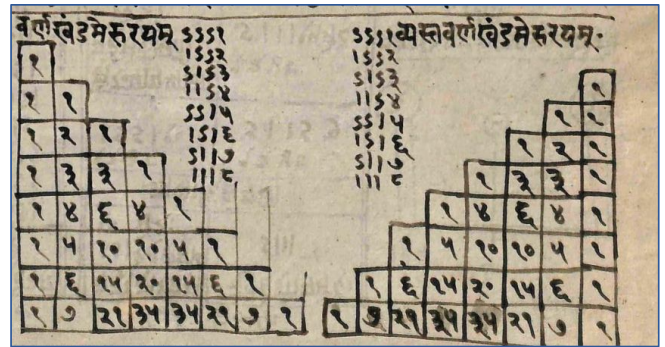 वर्णखंडमेरुरयम्
ऽऽऽ१
।ऽऽ२
ऽ।ऽ३
।।ऽ४
ऽऽ।५
।ऽ।६
ऽ।।७
।।।८
१
१ १
१ २ १
१ ३ ३ १
१ ४ ६ ४ १
१ ५ १० १० ५ १
१ ६ १५ २० १५ ६ १
१ ७ २१ ३५ ३५ २१ ७ १
ऽऽऽ१ व्यस्तवर्णखंडमेरुरयम्
।ऽऽ२
ऽ।ऽ३
।।ऽ४
ऽऽ।५
।ऽ।६
ऽ।।७
।।।८
१
१ १
१ २ १
१ ३ ३ १
१ ४ ६ ४ १
१ ५ १० १० ५ १
१ ६ १५ २० १५ ६ १
१ ७ २१ ३५ ३५ २१ ७ १